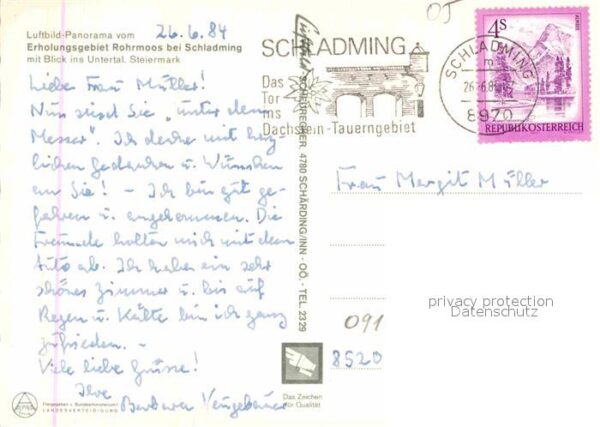 Luftbild-Panorama vom
Erholungsgebiet Rohrmoos bei Schladming
mit Blick ins Untertal. Steiermark
26.6.84
Liebe Frau Müller!
Nun sind Sie "unter dem
Messer". Ich denke mit herz
lichen Gedanken u. Wünschen
an Sie! - Ich bin gut ge-
fahren u. angekommen. Die
Freunde holten mich mit dem
Auto ab. Ich habe ein sehr
schönes Zimmer u. bis auf
Regen u. Kälte bin ich ganz
zufrieden. -
Viele liebe Grüsse!
Ihre
Barbara Neugebauer
Freigegeben v. Bundesministerium f.
LANDESVERTEIDIGUNG
SCHUTZREGNER 4780 SCHÄRDING/INN - OÖ. - TEL. 2329
Das Zeichen
für Qualität
SCHLADMING
Das
Tor
ins
Dachstein-Tauerngebiet
SCHLADMING
8970
4 S
REPUBLIK ÖSTERREICH
Frau Margit Müller
privacy protection
Datenschutz
091
8520